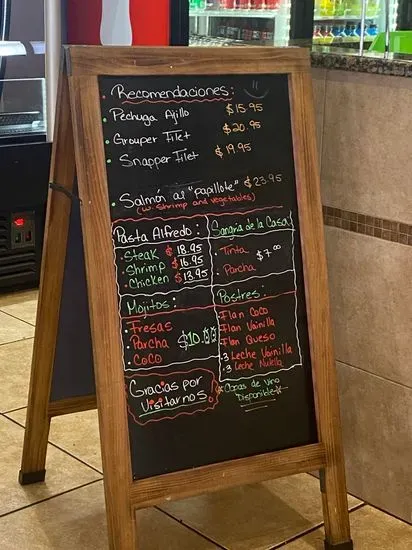 Recomendaciones:
Pechuga Ajillo $15.95
Grouper Filet $20.95
Snapper Filet $19.95
Salmón al "papillote" $23.95
(w. Shrimp and vegetables)
Pasta Alfredo:
Steak $18.95
Shrimp $16.95
Chicken $13.95
Sangria de la Casa
Tinta
Parcha
$7.00
Mojitos:
Fresas
Parcha
Coco
$10.00
Postres:
Flan Coco
Flan Vainilla
Flan Queso
3 Leche Vainilla
3 Leche Nutella
Gracias por
Visitarnos
*Copas de Vino
Disponible*